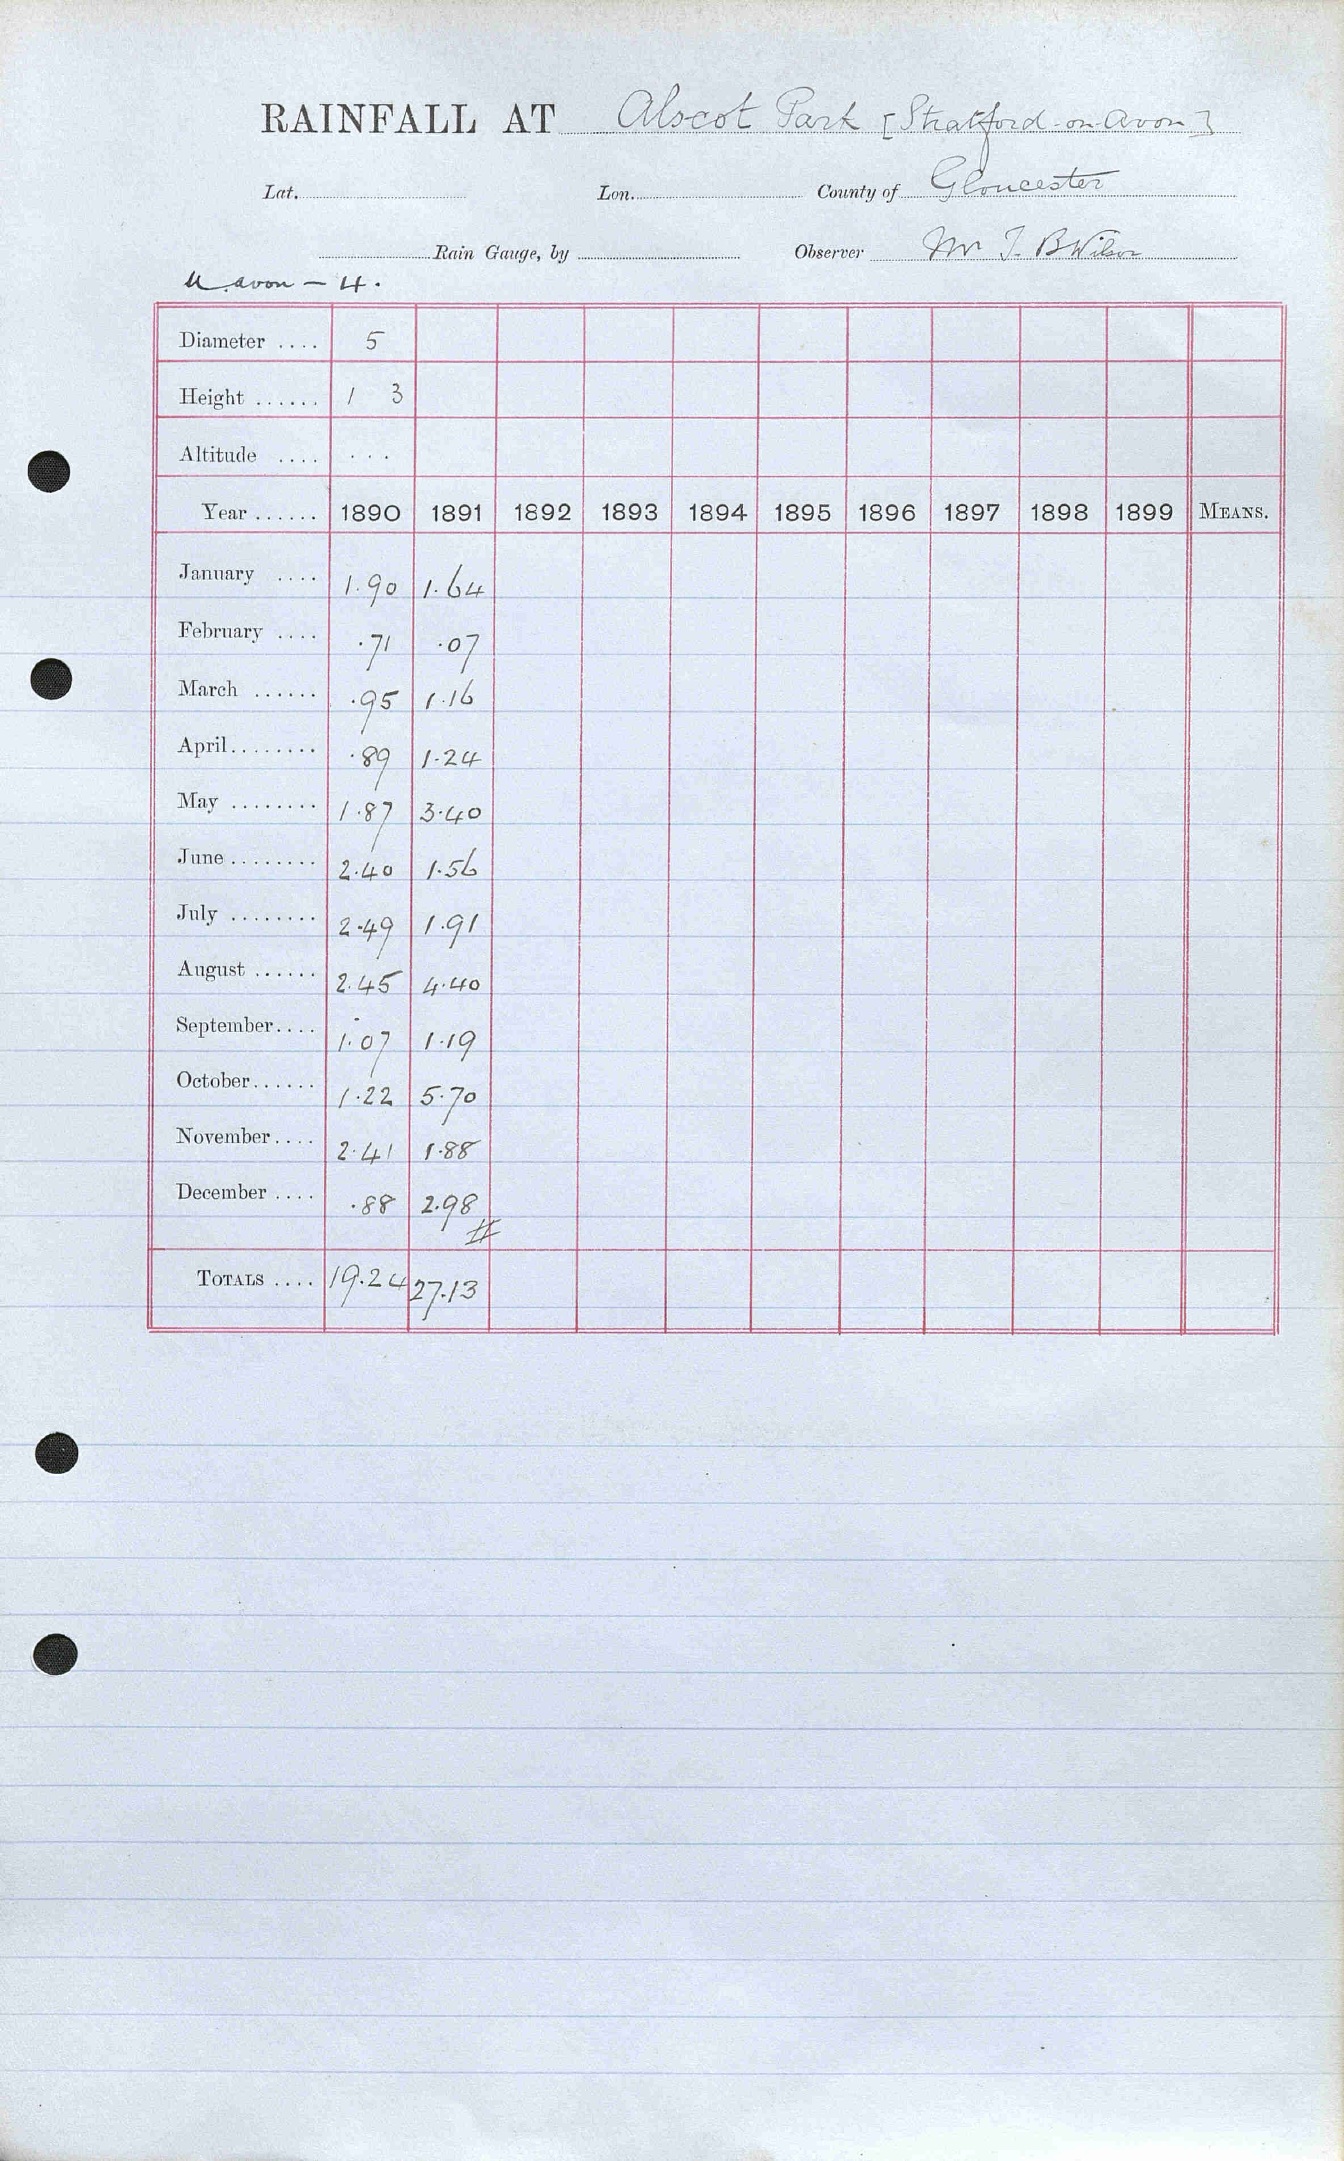 RAINFALL AT Alscot Park [Stratford-on-Avon]
Lat. Lon. County of Gloucester
Rain Gauge, by Observer Mr J. B Wilson
U. avon – 4.
Diameter .... 5
Height ...... 1 3
Altitude .... ...
Year ...... 1890 1891 1892 1893 1894 1895 1896 1897 1898 1899 MEANS.
January .... 1.90 1.64
February .... .71 .07
March ...... .95 1.16
April........ .89 1.24
May ........ 1.87 3.40
June ........ 2.40 1.56
July ........ 2.49 1.91
August ...... 2.45 4.40
September.... 1.07 1.19
October...... 1.22 5.70
November.... 2.41 1.88
December .... .88 2.98
#
TOTALS .... 19.24 27.13